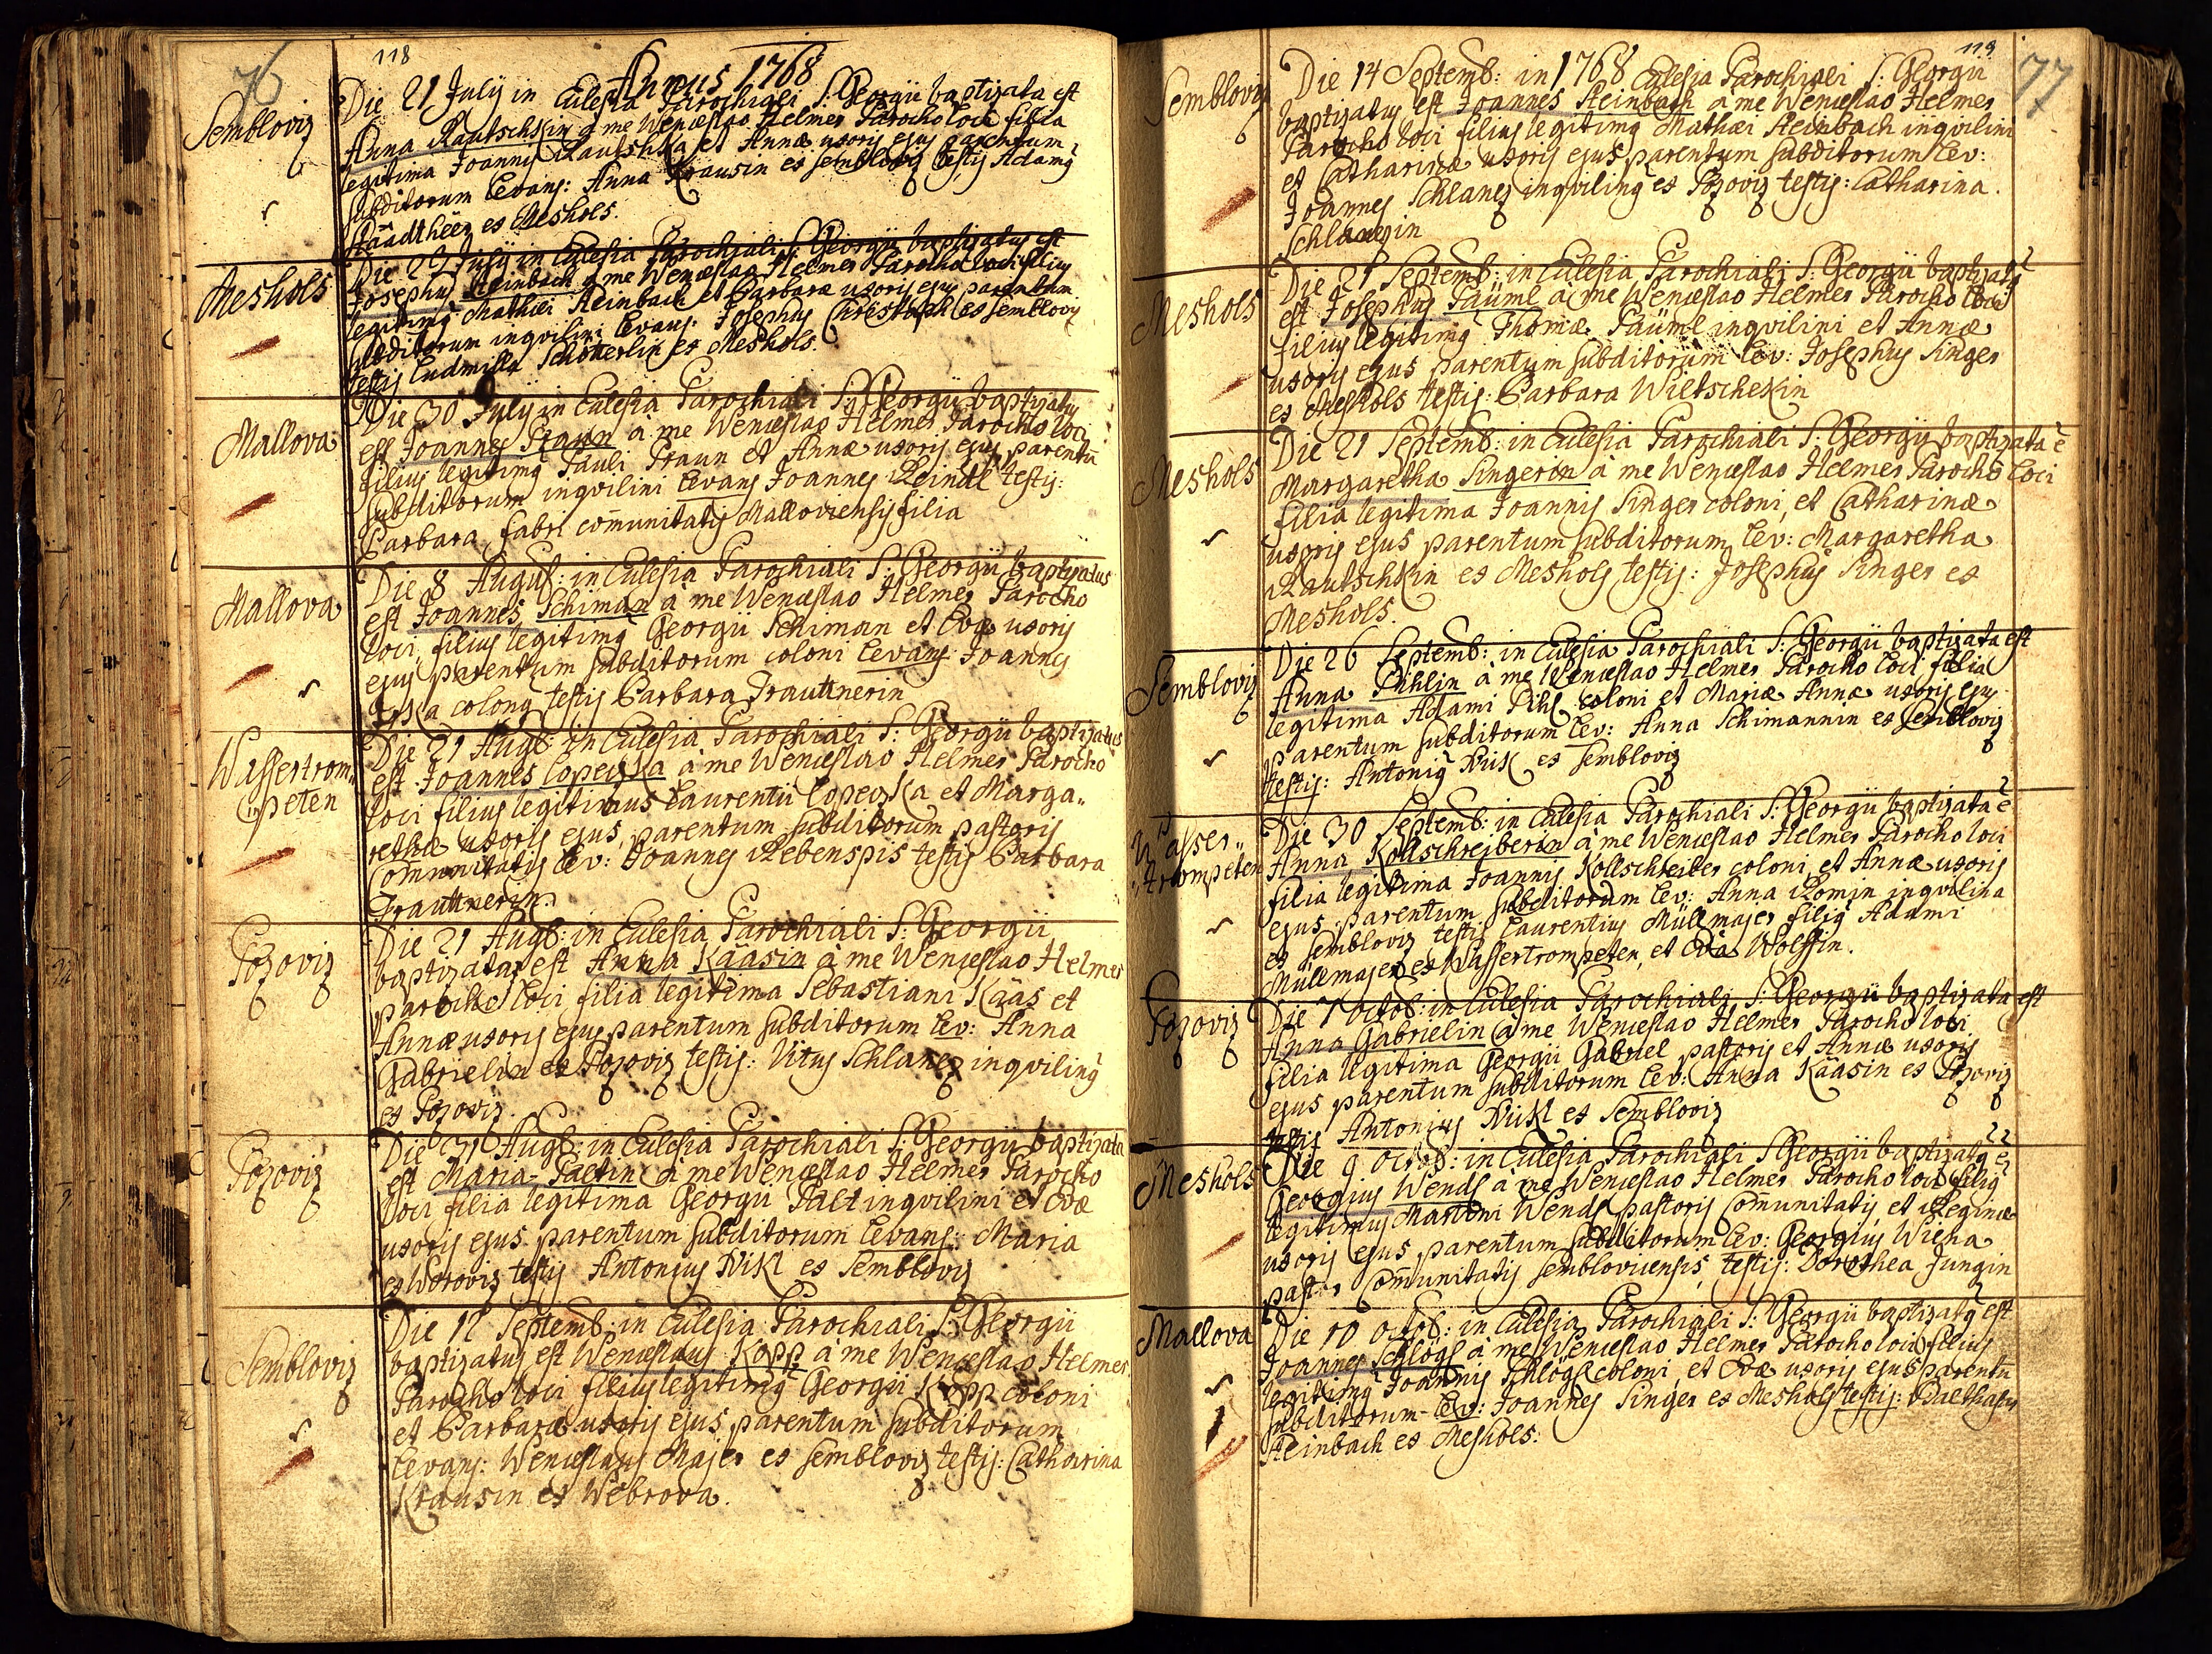 76
118
Annus 1768
Sembloviz
Die 21 July in Eulesia Parochiali S: Georgii baptizata est
Anna Rautschkin à me Wenceslao Helmer Parocho loci filia
legitima Joannis Rautschka et Annæ uxoris ejus parentum
subditorum Levans: Anna Krausin ex Sembloviz testis Adamus
Staadtheer ex Meshols.
Meshols
Die 29 July in Eulesia Parochiali S: Georgii baptizatus est
Josephus Steinbach à me Wenceslao Helmer Parocho loci filius
legitimus Mathæi Steinbach et Barbaræ uxoris ejus parentum
subditorum inqvilini Levans: Josephus Christoph ex Sembloviz
testis Ludmilla Schötterlin ex Meshols.
Mallova
Die 30 July in Eulesia Parochiali S: Georgii baptizatus
est Joannes Praun à me Wenceslao Helmer Parocho loci
filius legitimus Pauli Praun et Annæ uxoris ejus parentũ
subditorum inqvilini Levans Joannes Reindl testis:
Barbara fabri com̃unitatis Malloviensis filia
Mallova
Die 8 August: in Eulesia Parochiali S: Georgii baptizatus
est Joannes Schiman à me Wenceslao Helmer Parocho
loci filius legitimus Georgii Schiman et Evæ uxoris
ejus parentum subditorum coloni Levans: Joannes
colonus testis Barbara Trauttnerin
Wassertrom„
peten
Die 21 Augs: in Eulesia Parochiali S: Georgii baptizatus
est Joannes Lopeizka à me Wenceslao Helmer Parocho
loci filius legitimus Laurentii Lopeizka et Marga„
rethæ uxoris ejus, parentum subditorum pastoris
Com̃unitatis Lev: Joannes Rebenspis testis Barbara
Trauttnerin.
Pozoviz
Die 21 Augs: in Eulesia Parochiali S: Georgii
baptizata est Anna Kääsin à me Wenceslao Helmer
parocho loci filia legitima Sebastiani Kääs et
Annæ uxoris ejus parentum subditorum Lev: Anna
Gabrielin ex Pozoviz testis: Vitus Schlanez inqvilinus
ex Pozoviz.
Pozoviz
Die 31 Augs: in Eulesia Parochiali S: Georgii baptizata
est Maria Paltin à me Wenceslao Helmer Parocho
loci filia legitima Georgii Palt inqvilini et Evæ
uxoris ejus parentum subditorum Levans: Maria
ex Woroviz testis Antonius Nikl ex Sembloviz
Sembloviz
Die 12 Septemb: in Eulesia Parochiali S: Georgii
baptizatus est Wenceslaus Kopp à me Wenceslao Helmer
Parocho loci filius legitimus Georgii Kopp coloni
et Barbaræ uxoris ejus parentum subditorum
Levans: Wenceslaus Majer ex Sembloviz testis: Catharina
Krausin ex Webrova.
119
77
Sembloviz
Die 14 Septemb: in 1768 Eulesia Parochiali S: Georgii
baptizatus est Joannes Steinbach à me Wenceslao Helmer
Parocho loci filius legitimus Mathæi Steinbach inqvilini
et Catharinæ uxoris ejus parentum subditorum Lev:
Joannes Schlanez inqvilinus ex Pozoviz testis: Catharina
Schlanezin
Meshols
Die 21 Septemb: in Eulesia Parochiali S: Georgii baptizatus
est Josephus Päüml à me Wenceslao Helmer Parocho loci
filius legitimus Thomæ Päüml inqvilini et Annæ
uxoris ejus parentum subditorum Lev: Josephus Singer
ex Meshols testis: Barbara Wiltschekin
Meshols
Die 21 Septemb: in Eulesia Parochiali S: Georgii baptizata ẽ
Margaretha Singerin à me Wenceslao Helmer Parocho loci
filia legitima Joannis Singer coloni, et Catharinæ
uxoris ejus parentum subditorum Lev: Margaretha
Rautschkin ex Meshols testis: Josephus Singer ex
Meshols.
Sembloviz
Die 26 Septemb: in Eulesia Parochiali S: Georgii baptizata est
Anna Pihlin à me Wenceslao Helmer Parocho loci filia
legitima Adami Pihl coloni et Mariæ Annæ uxoris ejus
parentum subditorum Lev: Anna Schimannin ex Sembloviz
testis: Antonius Nikl ex Sembloviz
Wasser„
„trompeten
Die 30 Septemb: in Eulesia Parochiali S: Georgii baptizata ẽ
Anna Kollschreiberin à me Wenceslao Helmer Parocho loci
filia legitima Joannis Kollschreiber coloni, et Annæ uxoris
ejus, parentum subditorum Lev: Anna Romin inqvilina
ex Sembloviz testis Laurentius Müllmajer filius Adami
Müllmajer ex Wassertrompeten, et Eva Wolffin.
Pozoviz
Die 7 Octob: in Eulesia Parochiali S: Georgii baptizata est
Anna Gabrielin à me Wenceslao Helmer Parocho loci
filia legitima Georgii Gabriel pastoris et Annæ uxoris
ejus parentum subditorum Lev: Anna Kääsin ex Pozoviz
testis Antonius Nikl ex Sembloviz
Meshols
Die 9 Octob: in Eulesia Parochiali S Georgii baptizatus ẽ
Georgius Wendl à me Wenceslao Helmer Parocho loci filius
legitimus Martini Wendl pastoris Com̃unitatis et Reginæ
uxoris ejus parentum subditorum Lev: Georgius Wiena
pastor Com̃unitatis Semblovicensis, testis: Dorothea Jungin
Mallova
Die 10 Octob: in Eulesia Parochiali S: Georgii baptizatus est
Joannes Schlögl à me Wenceslao Helmer Parocho loci filius
legitimus Joannis Schlögl coloni, et Evæ uxoris ejus parentũ
subditorum Lev: Joannes Singer ex Meshols testis: Balthasar
Steinbach ex Meshols: